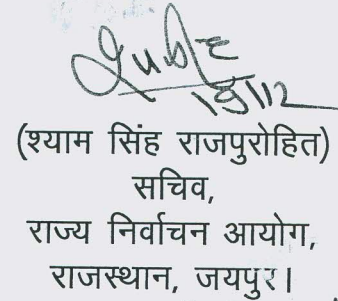 18/12
(श्याम सिंह राजपुरोहित)
सचिव,
राज्य निर्वाचन आयोग,
राजस्थान, जयपुर।